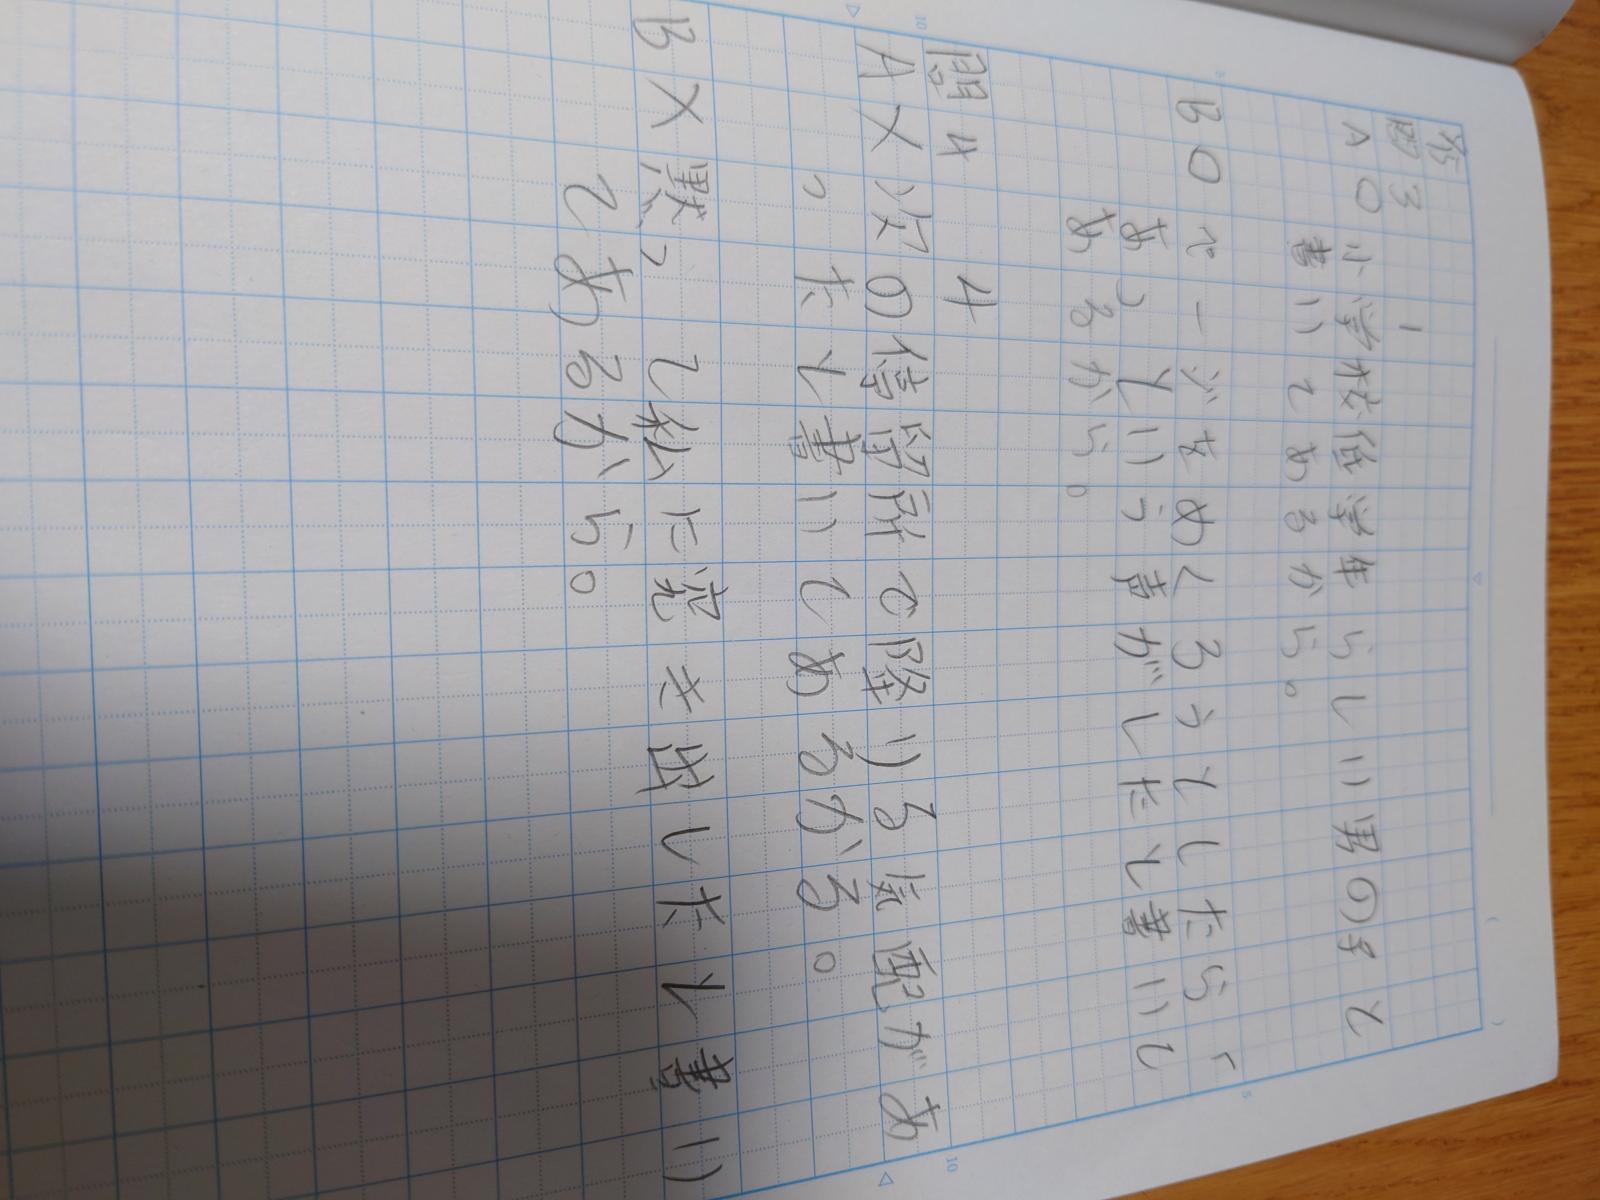 問3 1
A○ 小学校低学年らしい男の子と
書いてあるから。
B○ ページをめくろうとしたら、「
あっという声がしたと書いて
あるから。
問4 4
A×次の停留所で降りる気配があ
ったと書いてあるかる。
B×黙って私に席き出したと書い
てあるから。